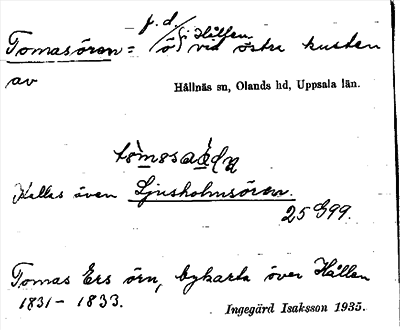 p. d.
Tomasören = ö i Hållen vid östra kusten
av
Hållnäs sn, Olands hd, Uppsala län.
Kallas även Ljusholmsören.
25 G99.
Tomas Ers örn, bykarta över Hållen
1831-1833.
Ingegärd Isaksson 1935.